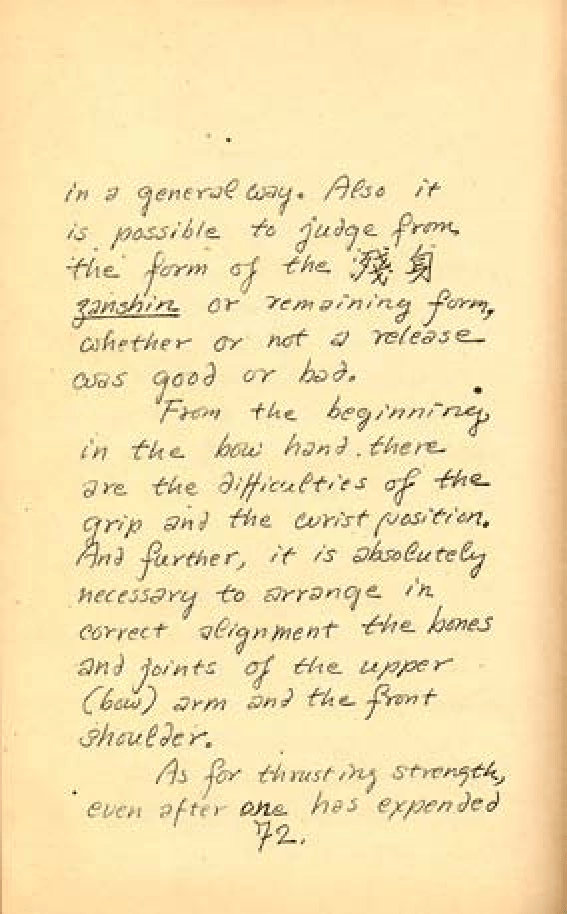 in a general way. Also it
is possible to judge from
the form of the 殘身
zanshin or remaining form,
whether or not a release
was good or bad.
From the beginning,
in the bow hand there
are the difficulties of the
grip and the wrist position.
And further, it is absolutely
necessary to arrange in
correct alignment the bones
and joints of the upper
(bow) arm and the front
shoulder.
As for thrusting strength,
even after one has expended
72.